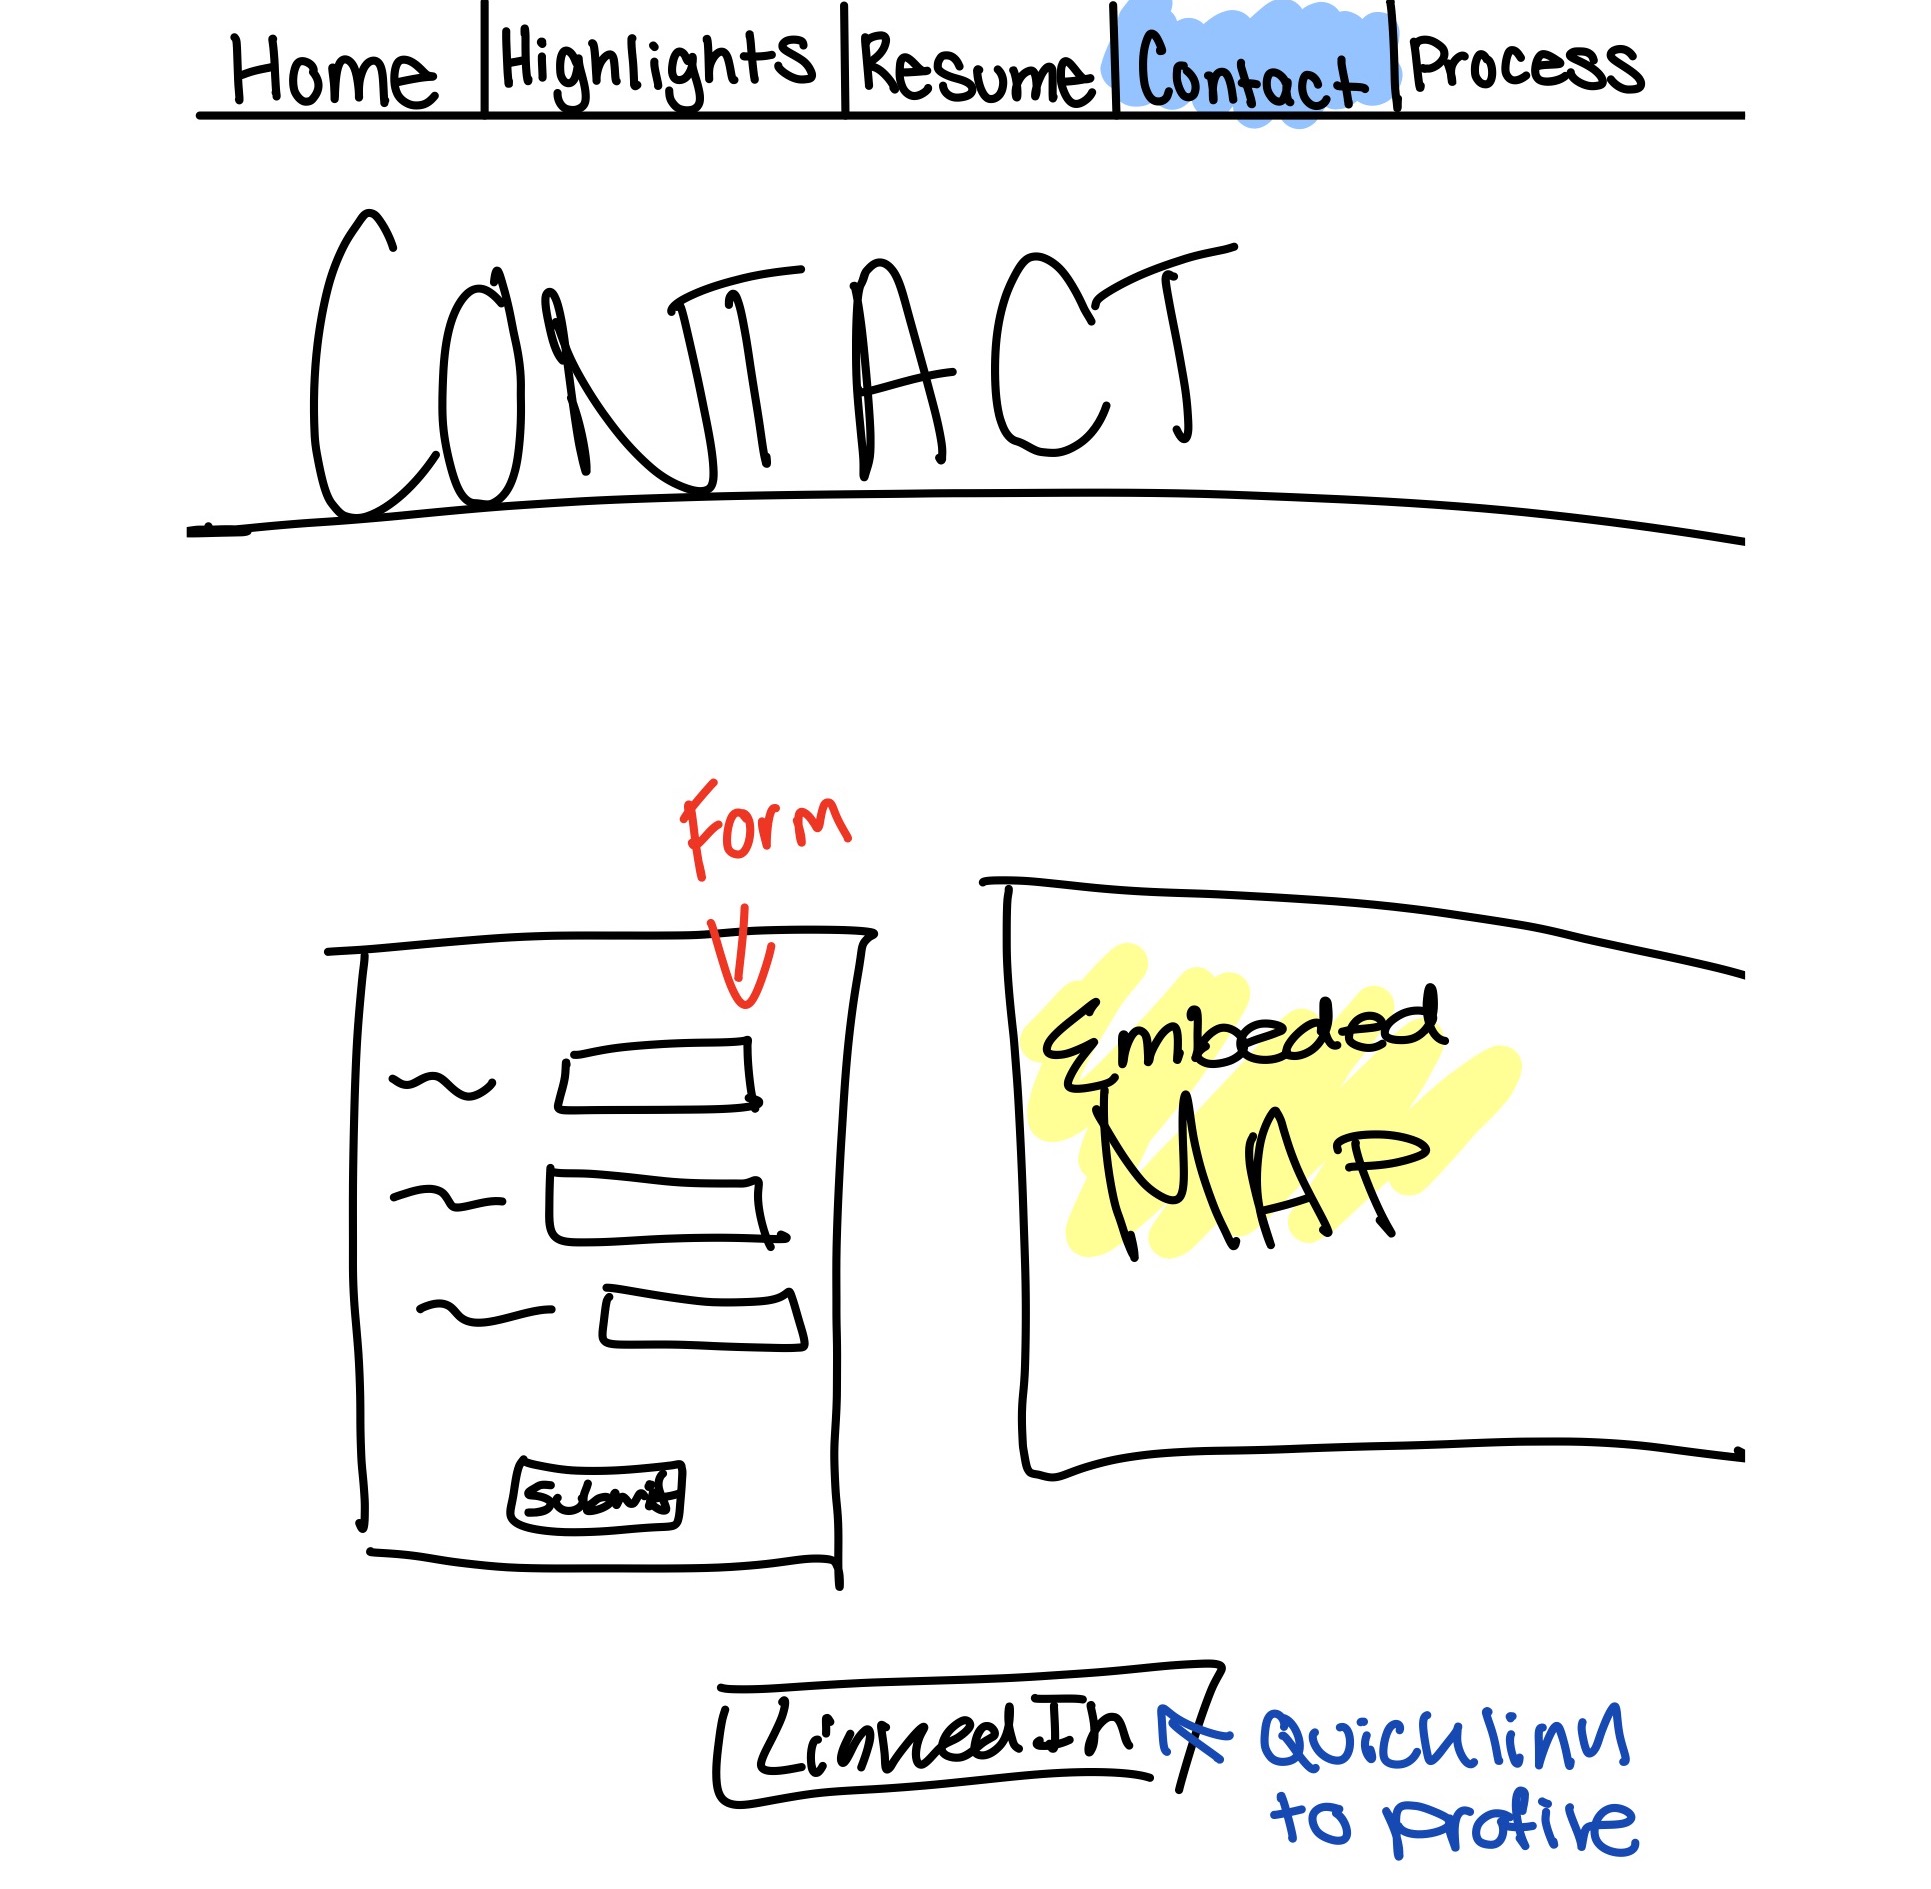 Home Highlights Resume Contact Process
CONTACT
Form
Embedded
MAP
Submit
LinkedIn
Quicklink
to profile